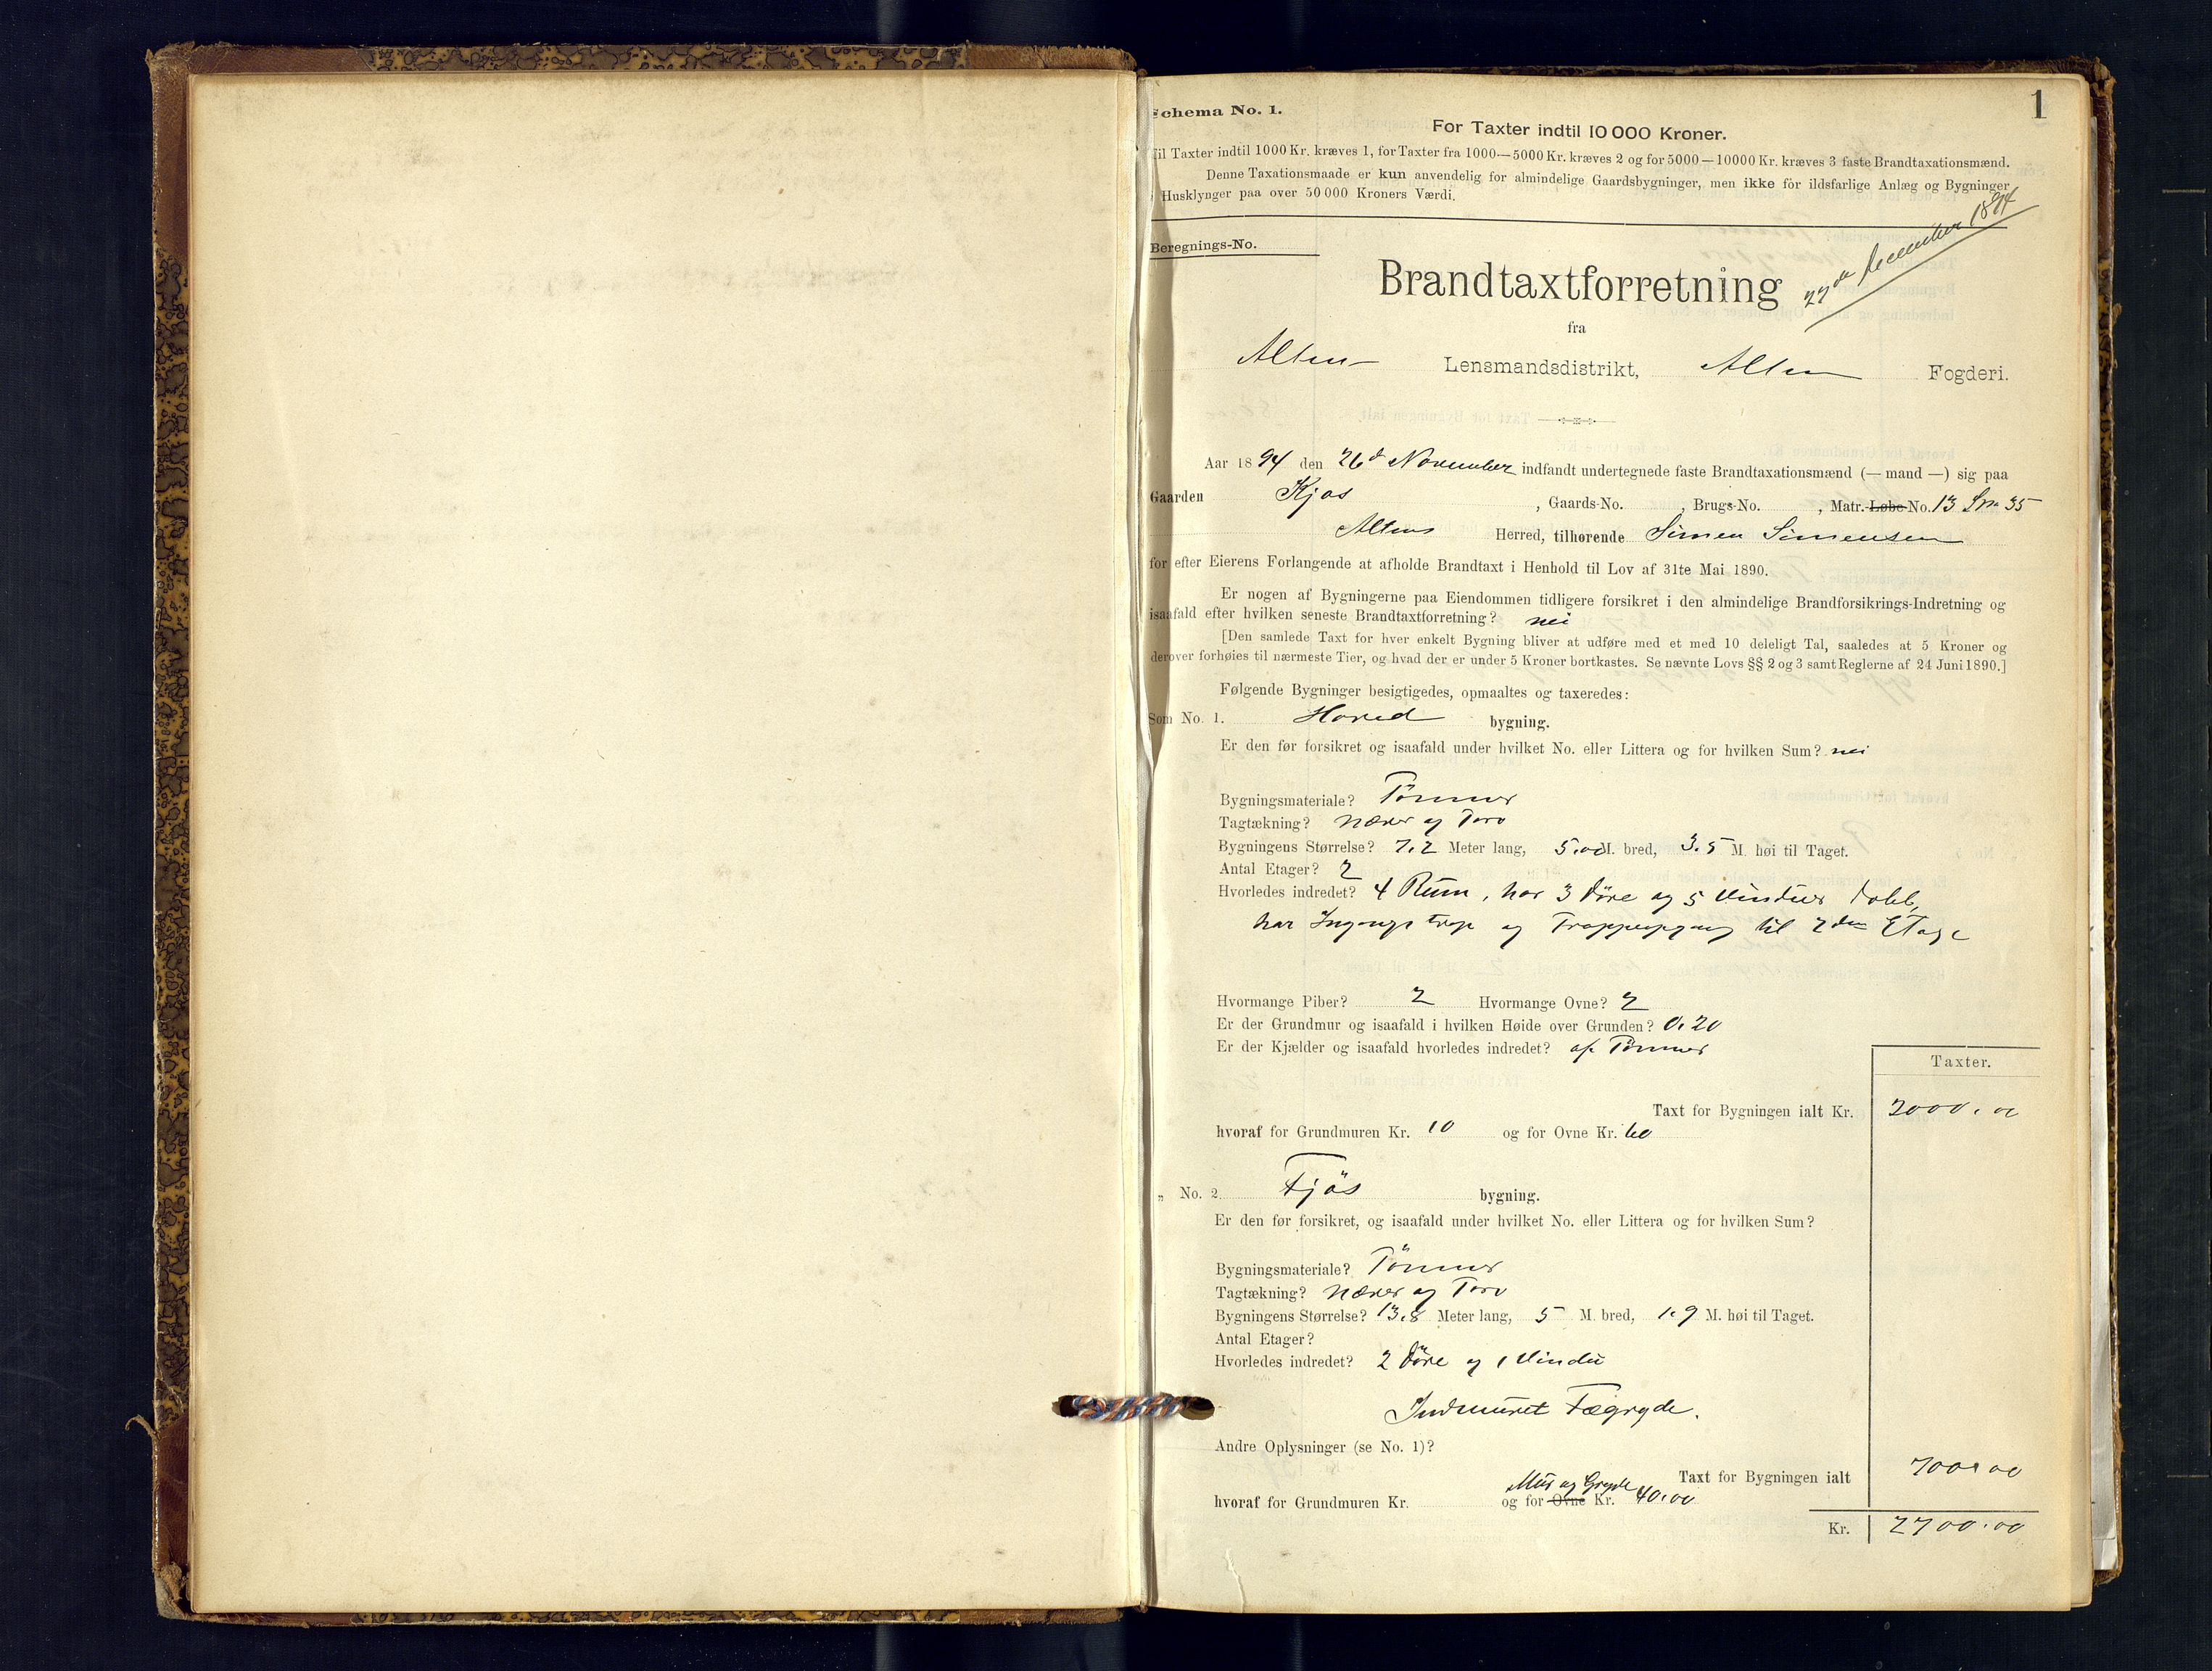 1
Schema No. 1.
For Taxter indtil 10 000 Kroner.
Til Taxter indtil 1000 Kr. kræves 1, for Taxter fra 1000—5000 Kr. kræves 2 og for 5000—10000 Kr. kræves 3 faste Brandtaxationsmænd.
Denne Taxationsmaade er kun anvendelig for almindelige Gaardsbygninger, men ikke for ildsfarlige Anlæg og Bygninger
i Husklynger paa over 50 000 Kroners Værdi.
Beregnings-No.
27de december 1894
Brandtaxtforretning
fra
Alten Lensmandsdistrikt, Alten Fogderi.
Aar 1894 den 26d November indfandt undertegnede faste Brandtaxationsmænd (— mand —) sig paa
Gaarden Kjos, Gaards-No. , Brugs-No. , Matr. Løbe-No. 13 Lno 35
Altens Herred, tilhørende Simen Simensen
for efter Eierens Forlangende at afholde Brandtaxt i Henhold til Lov af 31te Mai 1890.
Er nogen af Bygningerne paa Eiendommen tidligere forsikret i den almindelige Brandforsikrings-Indretning og
isaafald efter hvilken seneste Brandtaxtforretning? nei
[Den samlede Taxt for hver enkelt Bygning bliver at udføre med et med 10 deleligt Tal, saaledes at 5 Kroner og
derover forhøies til nærmeste Tier, og hvad der er under 5 Kroner bortkastes. Se nævnte Lovs §§ 2 og 3 samt Reglerne af 24 Juni 1890.]
Følgende Bygninger besigtigedes, opmaaltes og taxeredes:
Som No. 1. Hoved bygning.
Er den før forsikret og isaafald under hvilket No. eller Littera og for hvilken Sum? nei
Bygningsmateriale? Tömmer
Tagtækning? Næver og Torv
Bygningens Størrelse? 7.2 Meter lang, 5.00 M. bred, 3.5 M. høi til Taget.
Antal Etager? 2
Hvorledes indredet? 4 Rum, har 3 Döre og 5 Vinduer dobb.
har Ingangs trap og Trappeopgang til 2den Etage
Hvormange Piber? 2 Hvormange Ovne? 2
Er der Grundmur og isaafald i hvilken Høide over Grunden? 0.20
Er der Kjælder og isaafald hvorledes indredet? af Tömmer
Taxter.
Taxt for Bygningen ialt Kr. 2000.00
hvoraf for Grundmuren Kr. 10 og for Ovne Kr. 60
„ No. 2. Fjös bygning.
Er den før forsikret, og isaafald under hvilket No. eller Littera og for hvilken Sum?
Bygningsmateriale? Tömmer
Tagtækning? Næver og Torv
Bygningens Størrelse? 13.8 Meter lang, 5 M. bred, 1.9 M. høi til Taget.
Antal Etager?
Hvorledes indredet? 2 Döre og 1 Vindu
Indmuret Fægryde.
Andre Oplysninger (se No. 1)?
Taxt for Bygningen ialt 700.00
Mur og Gryde
hvoraf for Grundmuren Kr. og for Ovne Kr. 40.00
Kr. 2700.00